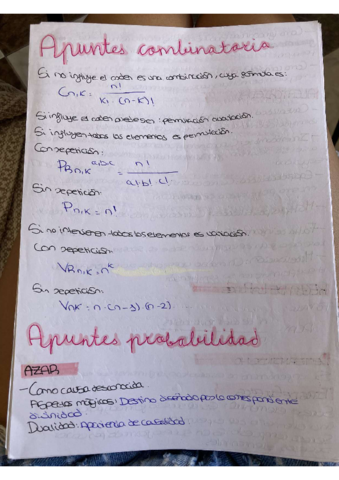 Apuntes combinatoria
Si no influye el orden es una combinación, cuya fórmula es:
Cn,K = n!
K! · (n-K)!
Si influye el orden puede ser: permutación o variación.
Si influyen todos los elementos es permutación.
Con repetición:
PRn,K a,b,c = n!
a! b! c!
Sin repetición:
Pn,K = n!
Si no intervienen todos los elementos es variación.
Con repetición:
VRn,K = n^K
Sin repetición:
Vn,K = n · (n-1) (n-2)
Apuntes probabilidad
AZAR
- Como causa desconocida
Aspectos mágicos: Destino diseñado por la correspondiente
divinidad.
Dualidad: Apariencia de casualidad